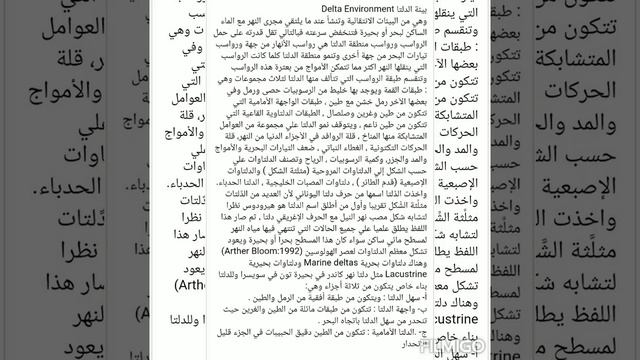 بيئة الدلتا Delta Environment
وهي من البيئات الانتقالية وتنشأ عند ما يلتقي مجرى النهر مع الماء
الساكن لبحر أو بحيرة فتنخفض سرعته فبالتالي تقل قدرته على حمل
الرواسب ورواسب منطقة الدلتا هي رواسب الأنهار من جهة ورواسب
تيارات البحر من جهة أخرى وتنمو منطقة الدلتا كلما كانت الرواسب
التي ينقلها النهر اكثر مما تتمكن الأمواج من بعثرة هذه الرواسب
وتنقسم طبقة الرواسب التي تتألف منها الدلتا لثلاث مجموعات وهي
: طبقات القمة ويوجد بها خليط من الرسوبيات حصى ورمل وفي
بعضها الآخر رمل خشن مع طين , طبقات الواجهة الأمامية التي
تتكون من طين وغرين وصلصال , الطبقات الدلتاوية القاعية التي
تتكون من طين ناعم , ويتوقف نمو الدلتا علي مجموعة من العوامل
المتشابكة منها المناخ , قلة الروافد في الأجزاء الدنيا من النهر، قلة
الحركات التكتونية , الغطاء النباتي , ضعف التيارات البحرية والأمواج
والمد والجزر، وكمية الرسوبيات , الرياح وتصنف الدلتاوات علي
حسب الشكل إلي الدلتاوات المروحية (مثلثة الشكل ) والدلتاوات
الإصبعية (قدم الطائر ) , دلتاوات المصبات الخليجية , الدلتا الحدباء.
واخذت الدلتا اسمها من حرف دلتا اليوناني لأن العديد من الدّلتات
مثلّثة الشّكل تقريبا وأول من أطلق اسم الدلتا هو هيرودوس نظرا
لتشابه شكل مصب نهر النيل مع الحرف الإغريقي دلتا , ثم صار هذا
اللفظ يطلق علميا علي جميع الحالات التي تنتهي فيها مياه النهر
لمسطح مائي ساكن سواء كان هذا المسطح بحرا أو بحيرة ويعود
تشكل معظم الدلتاوات لعصر الهولوسين (Arther Bloom:1992)
وهناك دلتاوات بحرية Marine deltas ودلتاوات بحيرية
Lacustrine مثل دلتا نهر كاندر في بحيرة تون في سويسرا وللدلتا
بناء خاص يتكون من ثلاثة أجزاء وهي:
أ- سهل الدلتا : ويتكون من طبقة أفقية من الرمل والطين .
ب- واجهة الدلتا : تتكون من طبقات مائلة من الطين والغرين حيث
تنحدر من سهل الدلتا باتجاه البحر .
ج- .الدلتا الأمامية : تتكون من الطين دقيق الحبيبات في الجزء قليل